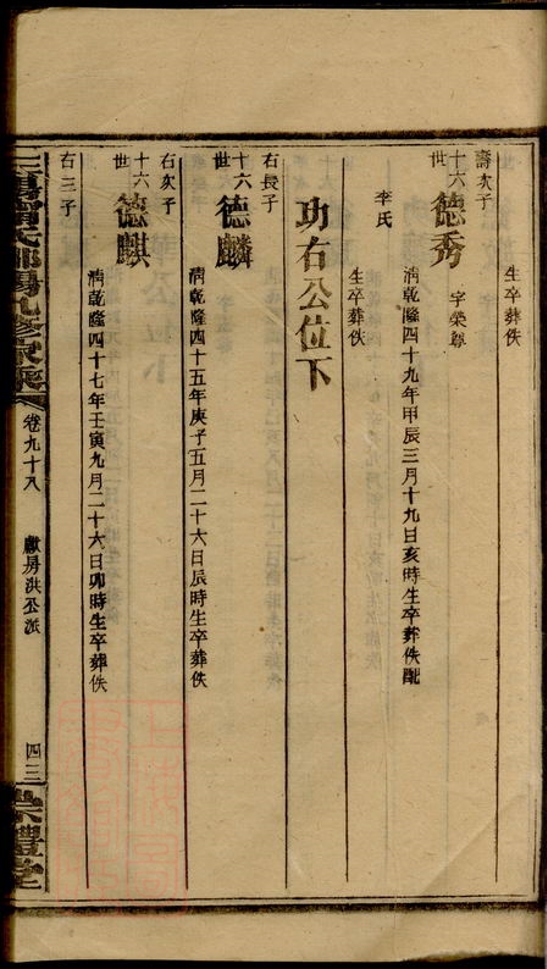 生卒葬佚
壽次子
十六世
德秀
字榮尊
清乾隆四十九年甲辰三月十九日亥時生卒葬佚配
李氏
生卒葬佚
功右公位下
右長子
十六世
德麟
清乾隆四十五年庚子五月二十六日辰時生卒葬佚
右次子
十六世
德麒
清乾隆四十七年壬寅九月二十六日卯時生卒葬佚
右三子
卷九十八
獻房洪公派
四三
崇禮堂